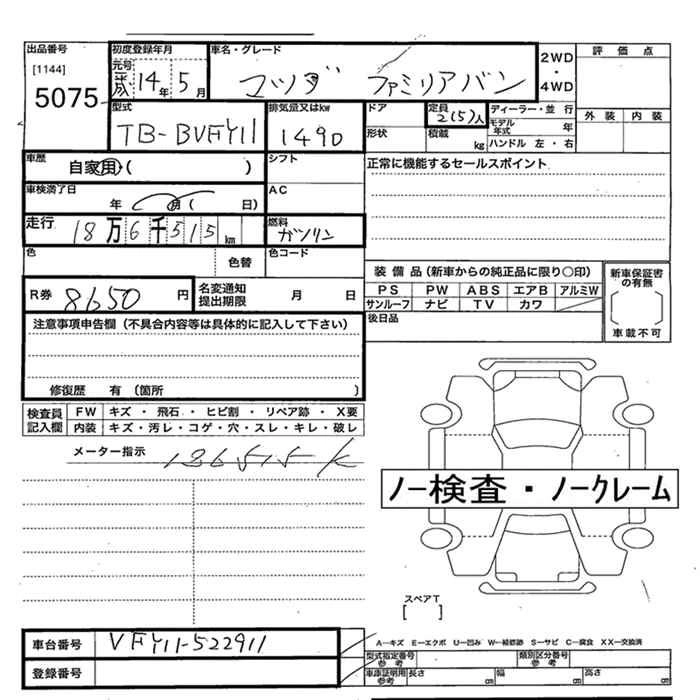 出品番号
[1144]
5075
初度登録年月
元号
平成 14年 5月
車名・グレード
マツダ ファミリアバン
2WD
・
4WD
評価点
外装 内装
型式
TB-BVFY11
排気量又はkw
1490
ドア
形状
定員
2(5)人
積載 kg
ディーラー・並行
モデル年式 年
ハンドル 左・右
車歴
自家用・( )
シフト
正常に機能するセールスポイント
車検満了日
年 月( 日)
AC
走行
18万6千515km
燃料
ガソリン
色
色替
色コード
装備品(新車からの純正品に限り○印)
PS PW ABS エアB アルミW
サンルーフ ナビ TV カワ
新車保証書の有無
車載不可
R券 8650 円
名変通知提出期限 月 日
後日品
注意事項申告欄(不具合内容等は具体的に記入して下さい)
修復歴 有 (箇所 )
検査員記入欄
FW キズ・飛石・ヒビ割・リペア跡・X要
内装 キズ・汚レ・コゲ・穴・スレ・キレ・破レ
メーター指示 186515K
ノー検査・ノークレーム
スペアT
[ ]
車台番号 VFY11-522911
登録番号
A―キズ E―エクボ U―凹み W―補修跡 S―サビ C―腐食 XX―交換済
型式指定番号 参考
類別区分番号 参考
車庫証明用 参考
長さ cm 幅 cm 高さ cm